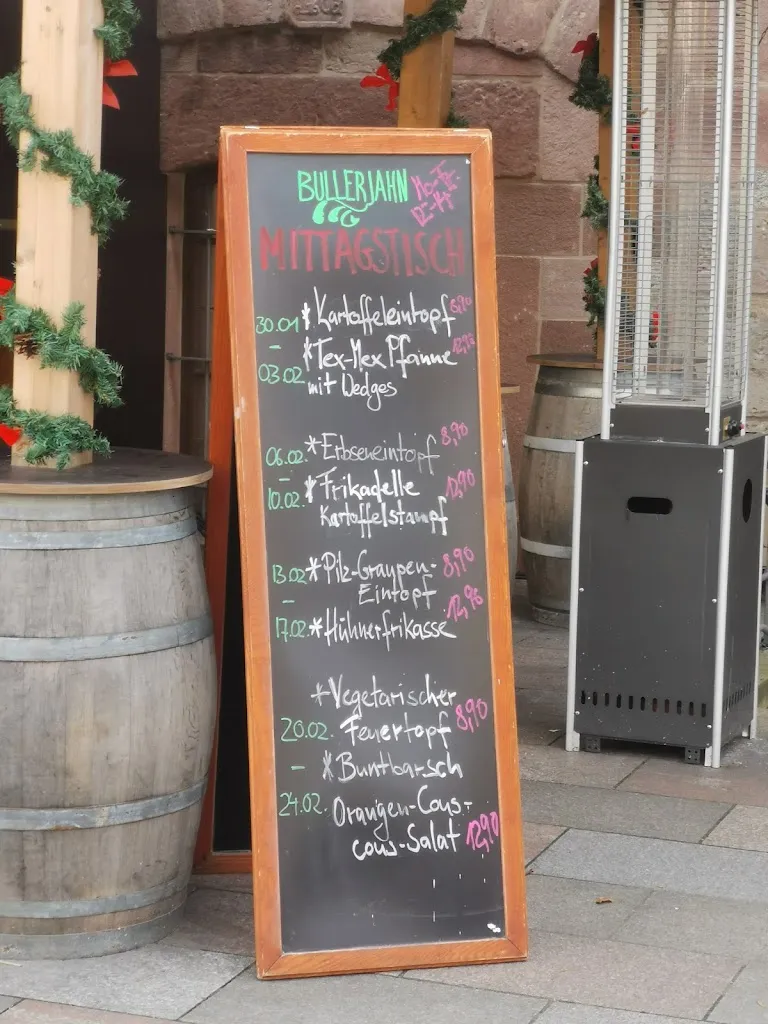 BULLERJAHN
Mo-Fr
12-14
MITTAGSTISCH
30.01 * Kartoffeleintopf 8,90
- * Tex-Mex Pfanne 12,90
03.02. mit Wedges
06.02. * Erbseneintopf 8,90
- 
10.02. * Frikadelle 12,90
Kartoffelstampf
13.02 * Pilz-Graupen- 8,90
- Eintopf
17.02. * Hühnerfrikasse 12,90
* Vegetarischer
20.02. Feuertopf 8,90
- * Buntbarsch
24.02. Orangen-Cous-
cous-Salat 12,90